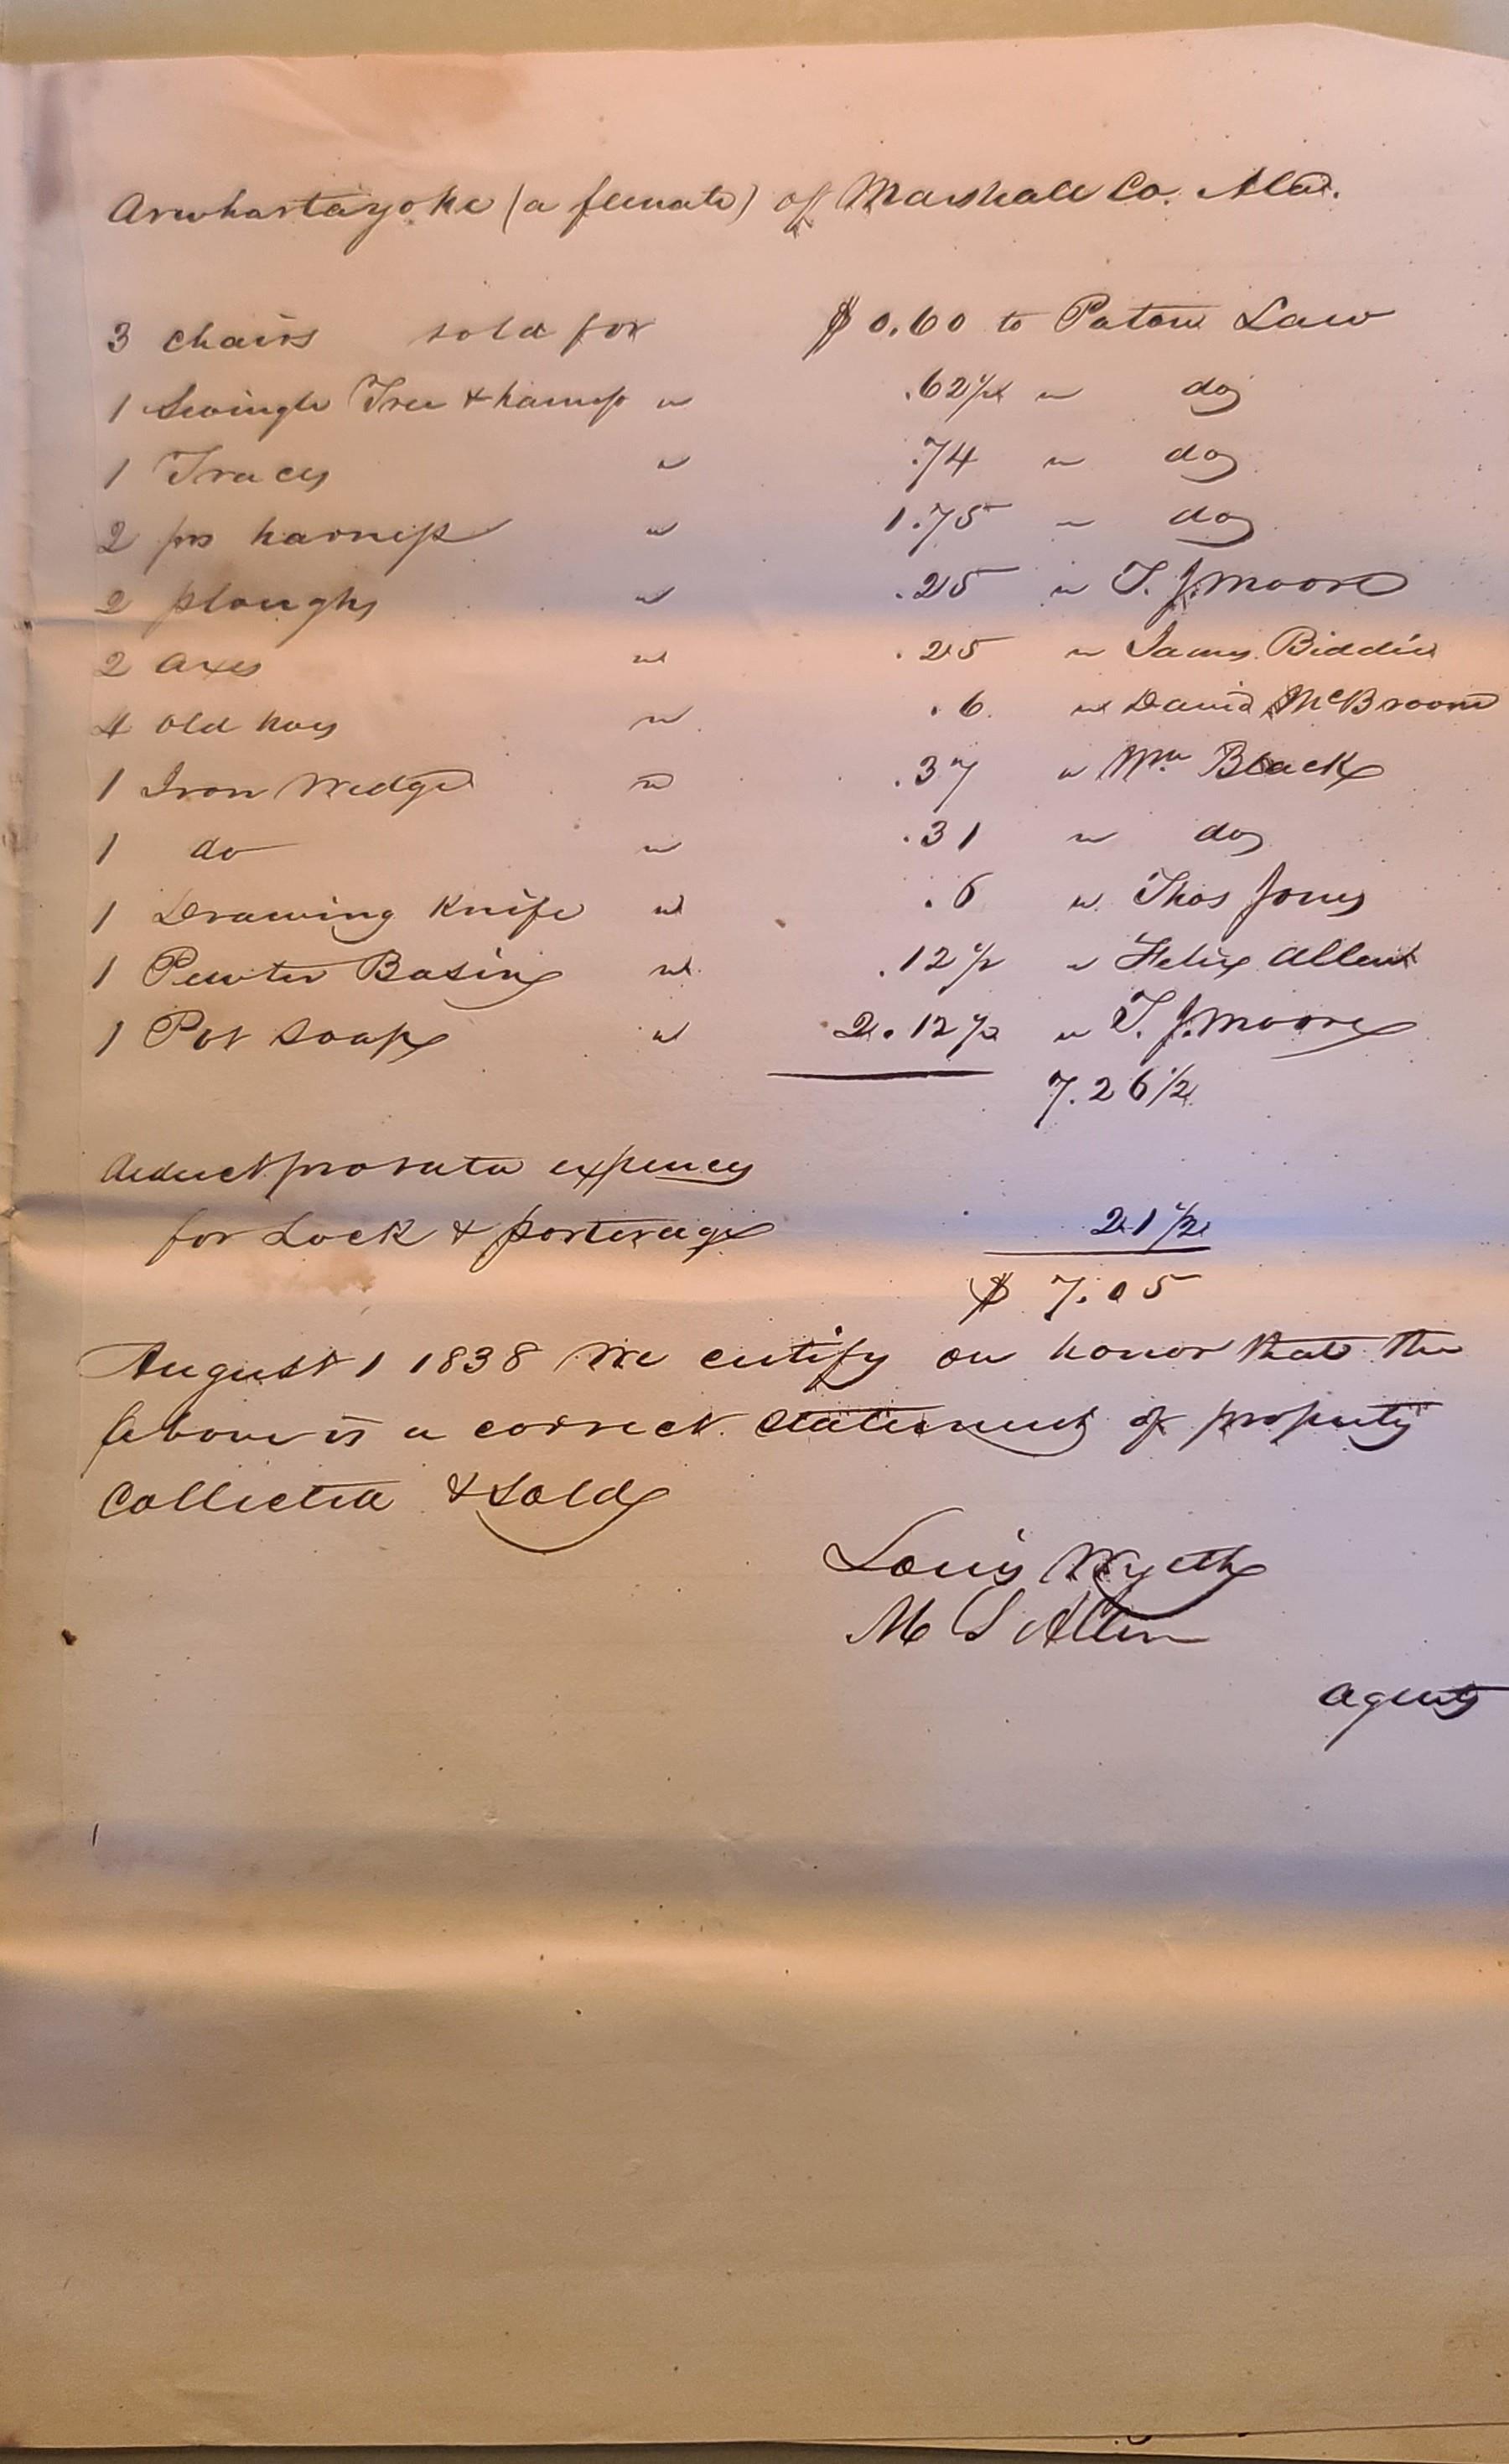 Arwhartayoke (a female) of Marshall Co. Ala.
3 chairs sold for $0.60 to Paton Law
1 Swingle Tree & hames " .62 1/2 " do
1 Traces " .74 " do
2 prs harness " 1.75 " do
2 ploughs " .25 " T. J. Moore
2 axes " .25 " James Biddie
4 old hoes " .6 " David McBroom
1 Iron Wedge " .37 " Wm Black
1 do " .31 " do
1 Drawing Knife " .6 " Thos Jones
1 Pewter Basin " .12 1/2 " Felix Allen
1 Pot Soap " 2.12 1/2 " T. J. Moore
7.26 1/2
deduct prorata expences
for Lock & porterage 21 1/2
$ 7.05
August 1 1838 We certify on honor that the
above is a correct statement of property
Collected & Sold
Louis Wyeth
M S Allen
agents